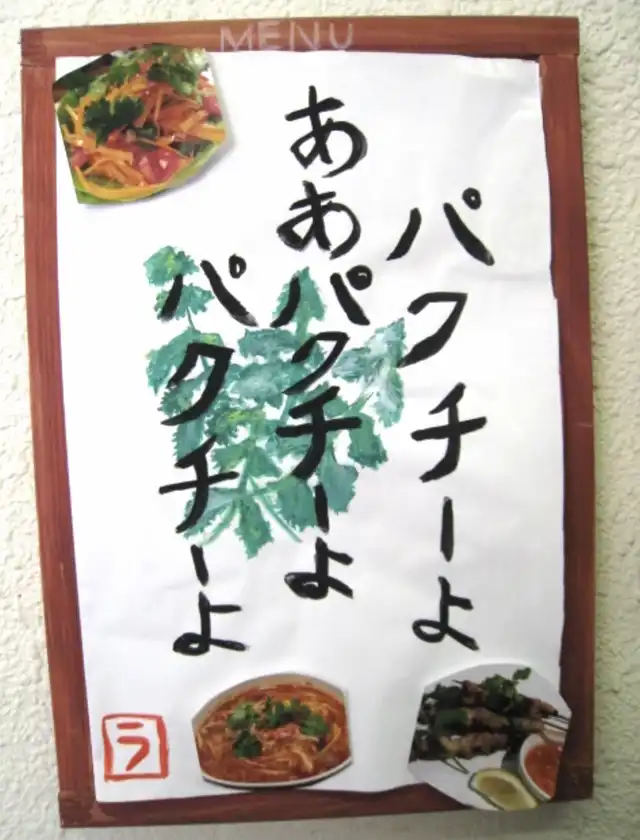 MENU
パクチーよ
ああパクチーよ
パクチーよ
う